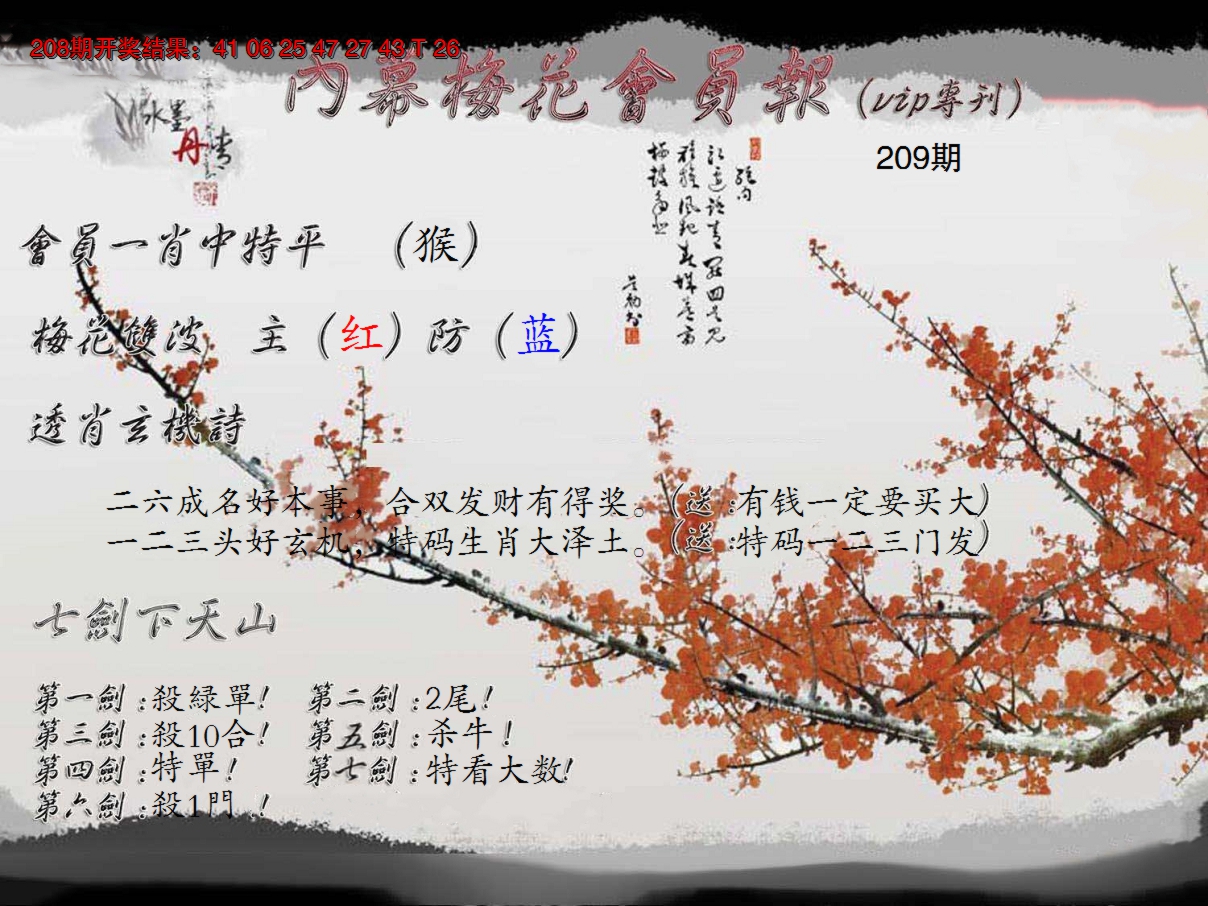 208期开奖结果：41 06 25 47 27 43 T 26
内幕梅花會員報（vip專刊）
水墨丹青
209期
會員一肖中特平 （猴）
梅花雙波 主（红）防（蓝）
透肖玄機詩
二六成名好本事，合双发财有得奖。（送:有钱一定要买大）
一二三头好玄机，特码生肖大泽土。（送:特码一二三门发）
七劍下天山
第一劍:殺緑單! 第二劍:2尾!
第三劍:殺10合! 第五劍:杀牛!
第四劍:特單! 第七劍:特看大数!
第六劍:殺1門 !